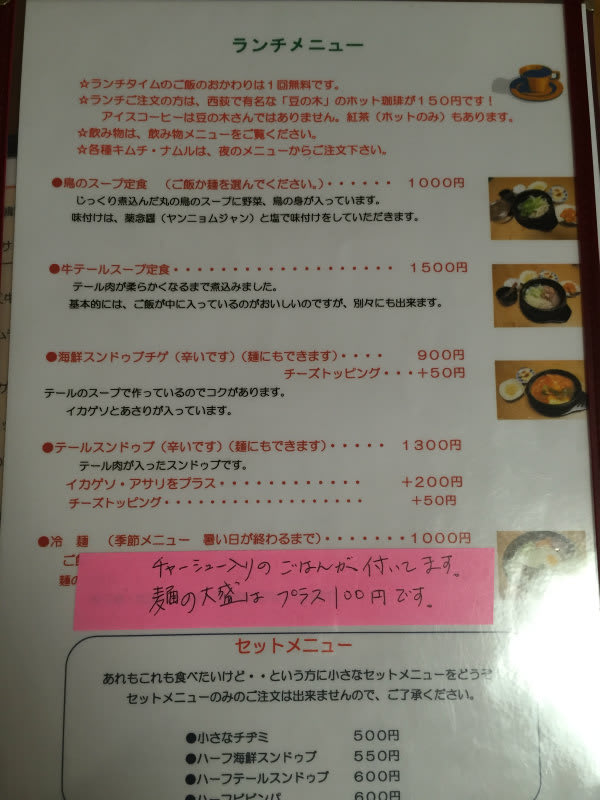 ランチメニュー
☆ランチタイムのご飯のおかわりは１回無料です。
☆ランチご注文の方は、西荻で有名な「豆の木」のホット珈琲が１５０円です！
アイスコーヒーは豆の木さんではありません。紅茶（ホットのみ）もあります。
☆飲み物は、飲み物メニューをご覧ください。
☆各種キムチ・ナムルは、夜のメニューからご注文下さい。
●鳥のスープ定食　（ご飯か麺を選んでください。）・・・・・・　１０００円
じっくり煮込んだ丸の鳥のスープに野菜、鳥の身が入っています。
味付けは、薬念醤（ヤンニョムジャン）と塩で味付けをしていただきます。
●牛テールスープ定食・・・・・・・・・・・・・・・・・・・・　１５００円
テール肉が柔らかくなるまで煮込みました。
基本的には、ご飯が中に入っているのがおいしいのですが、別々にも出来ます。
●海鮮スンドゥブチゲ（辛いです）（麺にもできます）・・・・　９００円
チーズトッピング・・・＋５０円
テールのスープで作っているのでコクがあります。
イカゲソとあさりが入っています。
●テールスンドゥブ（辛いです）（麺にもできます）・・・・・　１３００円
テール肉が入ったスンドゥブです。
イカゲソ・アサリをプラス・・・・・・・・・・・・　＋２００円
チーズトッピング・・・・・・・・・・・・・・・・・・　＋５０円
●冷　麺　（季節メニュー　暑い日が終わるまで）・・・・・・・１０００円
ご飯
麺の
チャーシュー入りの ごはんが 付いてます。
麺の大盛は プラス１００円です。
セットメニュー
あれもこれも食べたいけど・・という方に小さなセットメニューをどうぞ
セットメニューのみのご注文は出来ませんので、ご了承ください。
●小さなチヂミ　５００円
●ハーフ海鮮スンドゥブ　５５０円
●ハーフテールスンドゥブ　６００円
●ハーフビビンパ　６００円